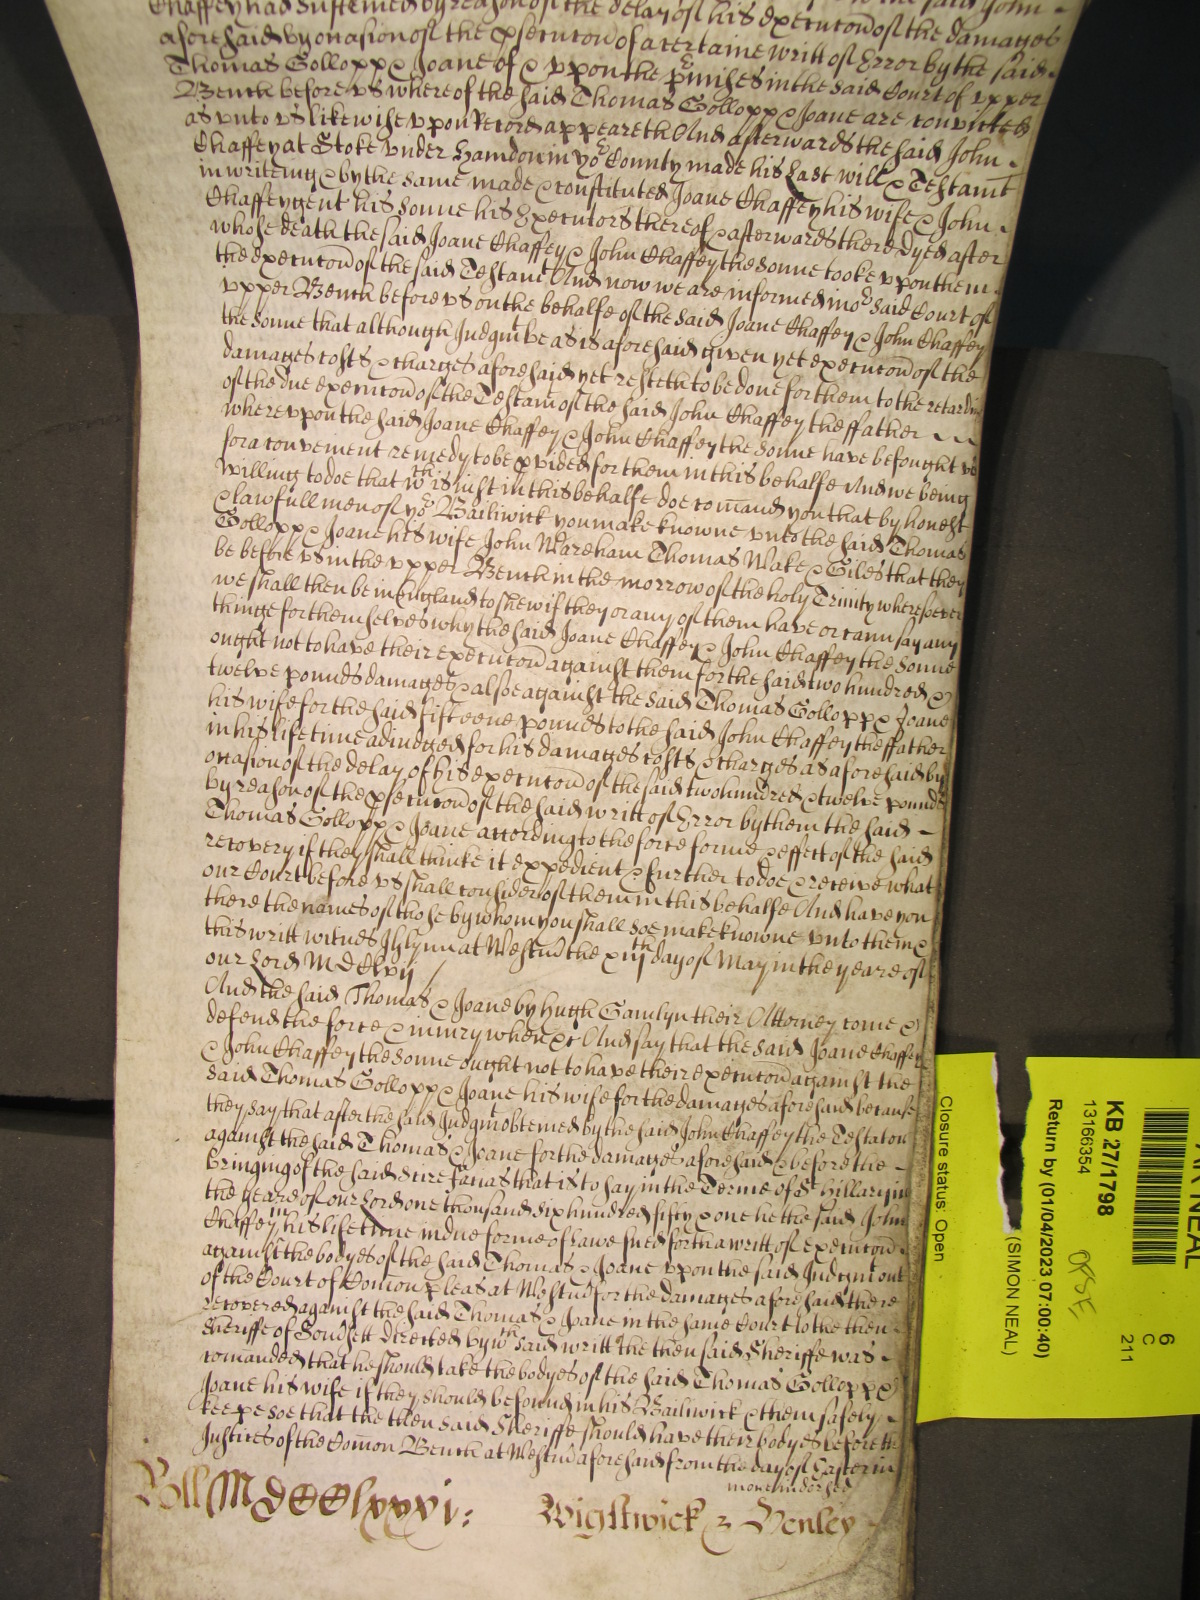 Chaffey had susteined by reason of the delay of his execucon of the damages
aforesaid by occasion of the psecucon of a certaine writt of Error by the said
Thomas Golloppe & Joane of & vppon the pmisses in the said Court of vpper
Bench before vs whereof the said Thomas Golloppe & Joane are convicted
as vnto vs likewise vppon Record appeareth And afterwards the said John
Chaffey at Stoke vnder Hamdon in yor County made his Last will & Testamt
in writeing & by the same made & constituted Joane Chaffey his wife & John
Chaffey gent his sonne his Executors thereof & afterwards there dyed after
whose death the said Joane Chaffey & John Chaffey the sonne tooke vpon them
the execucon of the said Testamt And now we are informed in or said Court of
vpper Bench before vs on the behalfe of the said Joane Chaffey & John Chaffey
the sonne that although Judgmt be as is aforesaid given yet execucon of the
damages costs & charges aforesaid yet resteth to be done for them to the retarding
of the due execucon of the Testamt of the said John Chaffey the ffather
wherevpon the said Joane Chaffey & John Chaffey the sonne have besought vs
for a convenient remedy to be pvided for them in this behalfe And we being
willing to doe that wch is just in this behalfe doe comand you that by honest
& lawfull men of yor Bailiwick you make knowne vnto the said Thomas
Golloppe & Joane his wife John Wareham Thomas Wake & Giles that they
be before vs in the vpper Bench in the morrow of the holy Trinity wheresoever
we shall then be in England to shew if they or any of them have or cann say any
thinge for themselves why the said Joane Chaffey & John Chaffey the sonne
ought not to have their execucon against them for the said two hundred &
twelve pounds damages & alsoe against the said Thomas Golloppe & Joane
his wife for the said fifteene pounds to the said John Chaffey the ffather
in his life time adiudged for his damages costs & charges as aforesaid by
occasion of the delay of his execucon of the said two hundred & twelve pounds
by reason of the psecucon of the said writt of Error by them the said
Thomas Golloppe & Joane according to the force forme & effect of the said
recovery if they shall thinke it expedient & further to doe & receive what
our Court before vs shall consider of them in this behalfe And have you
there the names of those by whom you shall soe make knowne vnto them &
this writt witnes J Glynn at Westmr the xiijth day of May in the yeare of
our Lord MDClvij
And the said Thomas & Joane by Hugh Gamlyn their Attorney come &
defend the force & iniury when &c And say that the said Joane Chaffey
& John Chaffey the sonne ought not to have their execucon against the
said Thomas Golloppe & Joane his wife for the damages aforesaid because
they say that after the said Judgmt obteined by the said John Chaffey the Testator
against the said Thomas & Joane for the damages aforesaid & before the
bringing of the said scire facias that is to say in the Terme of St Hillary in
the yeare of our Lord one thousand six hundred fifty & one he the said John
Chaffey in his life time in due forme of Lawe sued forth a writt of execucon
against the bodyes of the said Thomas & Joane vppon the said Judgmt out
of the Court of Comon pleas at Westmr for the damages aforesaid there
recovered against the said Thomas & Joane in the same Court to the then
Sheriffe of Somsett directed by wch said writt the then said Sheriffe was
comanded that he should take the bodyes of the said Thomas Golloppe &
Joane his wife if they should be found in his Bailiwick & them safely
keepe soe that the then said Sheriffe should have their bodyes before the
Justices of the Comon Bench at Westmr aforesaid from the day of Easter in
more indorsed
Roll MDCCClxxvi:
Wigstwick & Henley
AN NEAL
6
C
211
KB 27/1798
13166354
Return by (01/04/2023 07:00:40)
(SIMON NEAL)
Closure status: Open